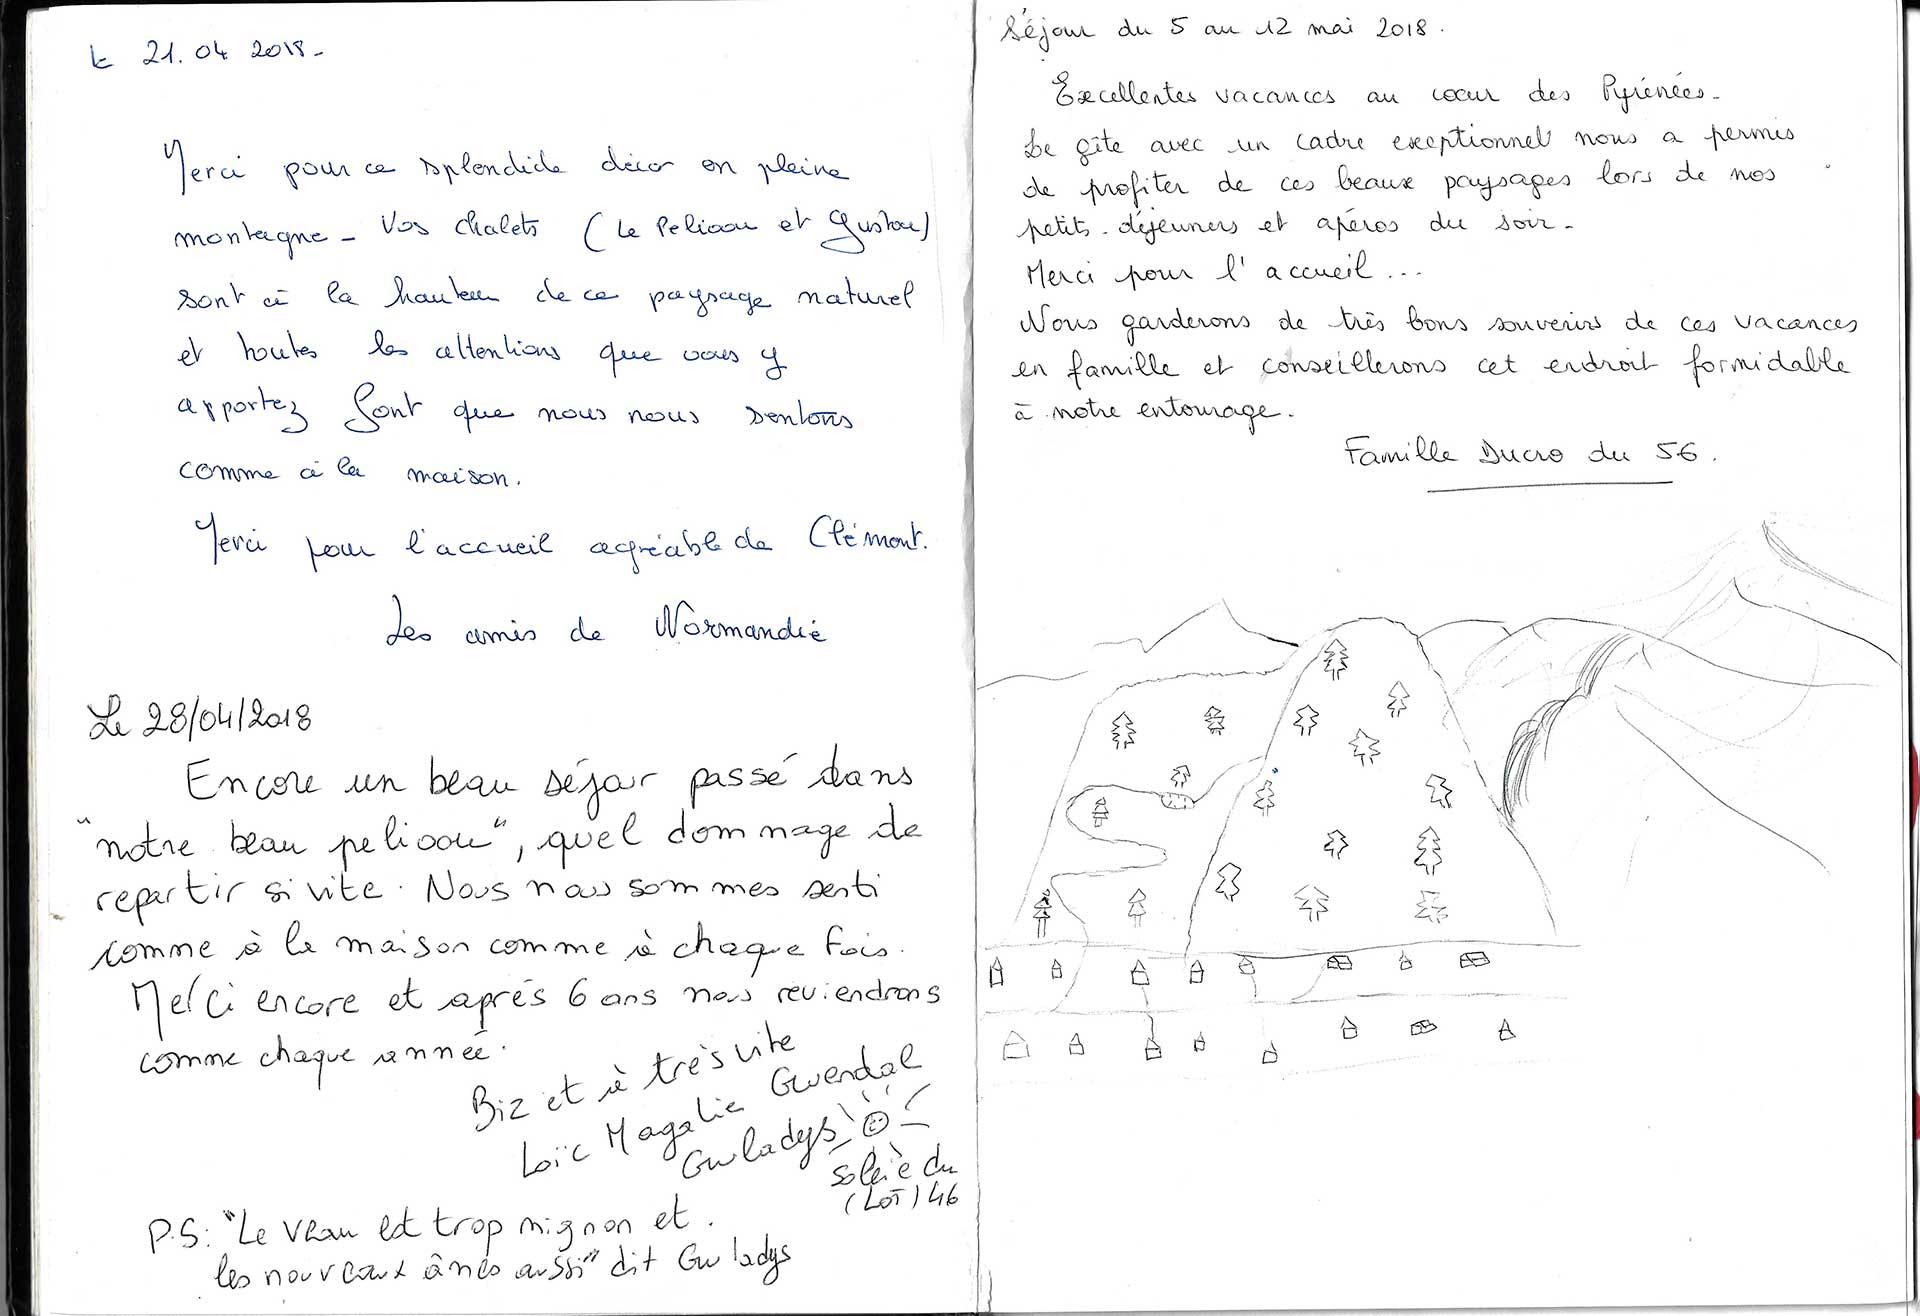 Le 21.04 2018-
Merci pour ce splendide décor en pleine
montagne - Vos chalets (Le Pelioou et Gustou)
sont à la hauteur de ce paysage naturel
et toutes les attentions que vous y
apportez font que nous nous sentons
comme à la maison.
Merci pour l'accueil agréable de Clémont.
Les amis de Normandie
Le 28/04/2018
Encore un beau séjour passé dans
"notre beau pelioou", quel dommage de
repartir si vite. Nous nous sommes senti
comme à la maison comme à chaque fois.
Merci encore et après 6 ans nous reviendrons
comme chaque année.
Biz et à très vite
Loïc Magalie Gwendal
Gwladys
du
(LOT) 46
P.S: "Le veau est trop mignon et
les nouveaux ânes aussi" dit Gwladys
Séjour du 5 au 12 mai 2018.
Excellentes vacances au coeur des Pyrénées-
Le gîte avec un cadre exceptionnel nous a permis
de profiter de ces beaux paysages lors de nos
petits-déjeuners et apéros du soir-
Merci pour l'accueil...
Nous garderons de très bons souvenirs de ces vacances
en famille et conseillerons cet endroit formidable
à notre entourage.
Famille Ducro du 56.